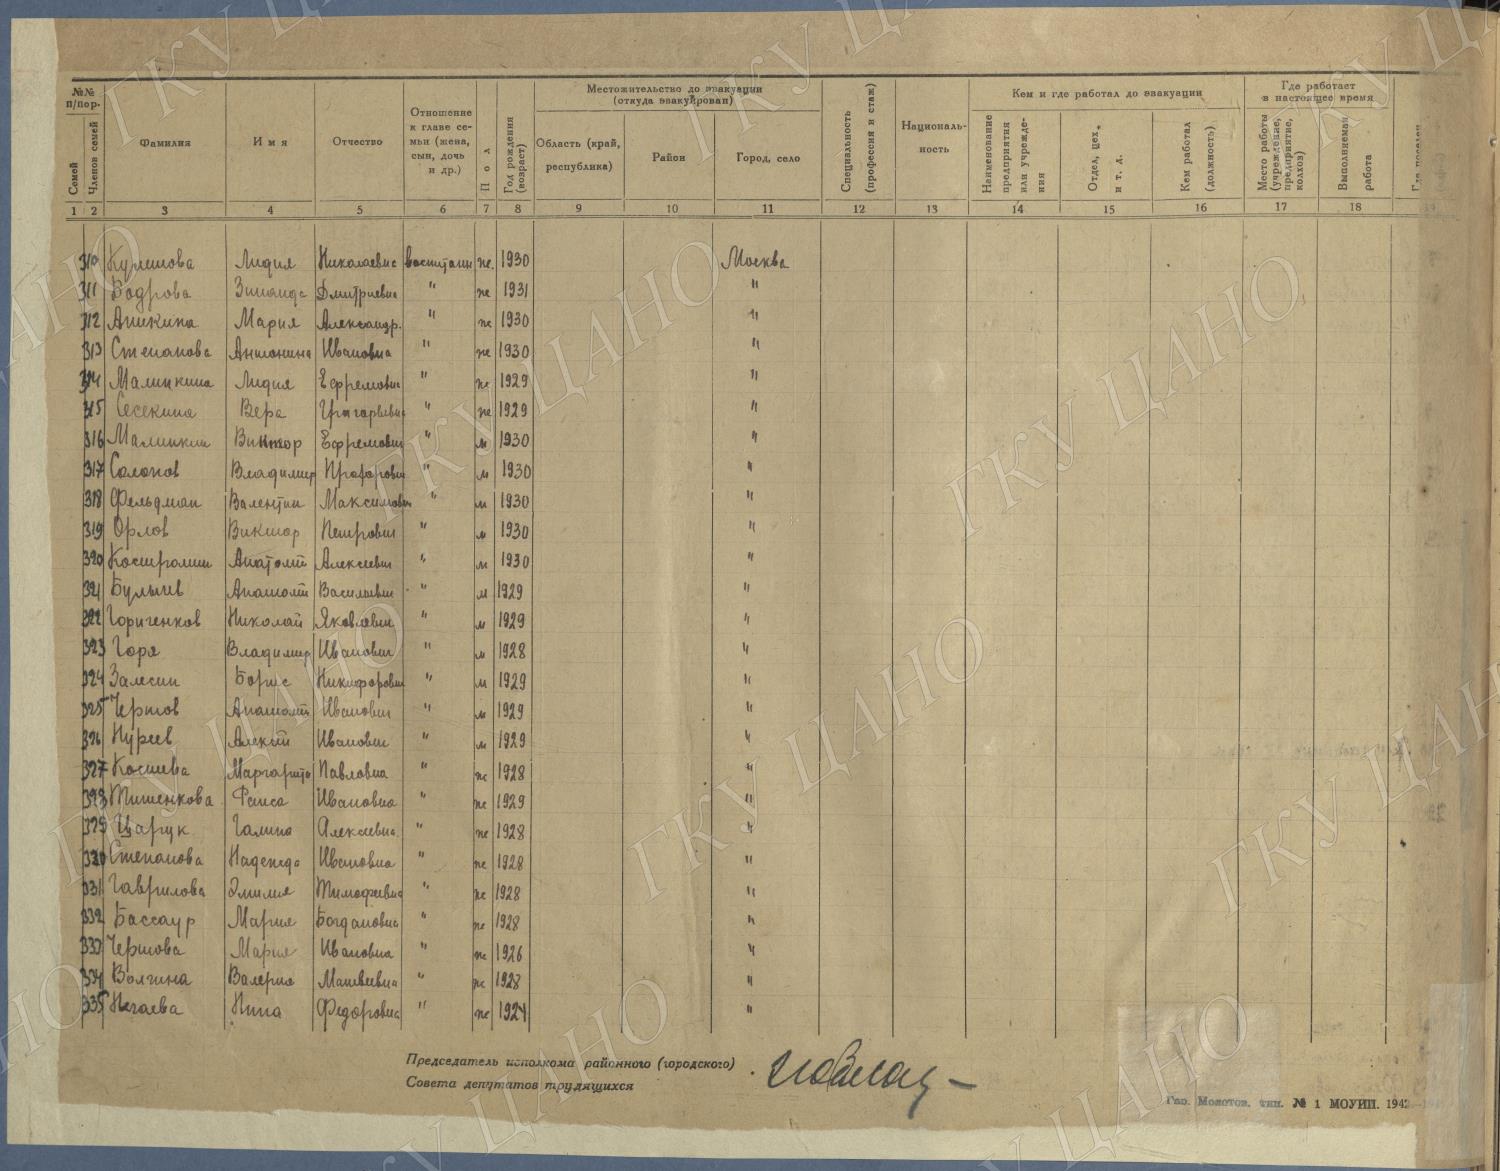 №№ п/пор. Фамилия Имя Отчество Отношение к главе семьи (жена, сын, дочь и др.) Пол Год рождения (возраст) Местожительство до эвакуации (откуда эвакуирован) Специальность (профессия и стаж) Националь-ность Кем и где работал до эвакуации Где работает в настоящее время
Семей Членов семей Область (край, республика) Район Город, село Наименование предприятия или учрежде-ния Отдел, цех, и т. д. Кем работал (должность) Место работы (учреждение, предприятие, колхоз) Выполняемая работа
1 2 3 4 5 6 7 8 9 10 11 12 13 14 15 16 17 18
310 Кулешова Лидия Николаевна воспитан ж. 1930 Москва
311 Бодрова Зинаида Дмитриевна " ж 1931 "
312 Аникина Мария Александр. " ж 1930 "
313 Степанова Антонина Ивановна " ж 1930 "
314 Малинкина Лидия Ефремовна " ж 1929 "
315 Сесекина Вера Григорьевна " ж 1929 "
316 Малинкин Виктор Ефремович " м 1930 "
317 Солонов Владимир " м 1930 "
318 Фельдман Валентин Максимович " м 1930 "
319 Орлов Виктор Петрович " м 1930 "
320 Костромин Анатолий Алексеевич " м 1930 "
321 Булычев Анатолий Васильевич " м 1929 "
322 Николай Яковлевич " м 1929 "
323 Горя Владимир Иванович " м 1928 "
324 Залесин Борис Никифорович " м 1929 "
325 Чернов Анатолий Иванович " м 1929 "
326 Нуреев Алексей Иванович " м 1929 "
327 Маргарита Павловна " ж 1928 "
328 Тишенкова Раиса Ивановна " ж 1929 "
329 Царук Галина Алексеевна " ж 1928 "
330 Степанова Надежда Ивановна " ж 1928 "
331 Гаврилова Эмилия Тимофеевна " ж 1928 "
332 Бассаур Мария Богдановна " ж 1928 "
333 Чернова Мария Ивановна " ж 1926 "
334 Волгина Валерия Матвеевна " ж 1928 "
335 Нечаева Нина Федоровна " ж 1924 "
Председатель исполкома районного (городского)
Совета депутатов трудящихся
Гор. Молотов, тип. № 1 МОУИП. 1942
ГКУ ЦАНО